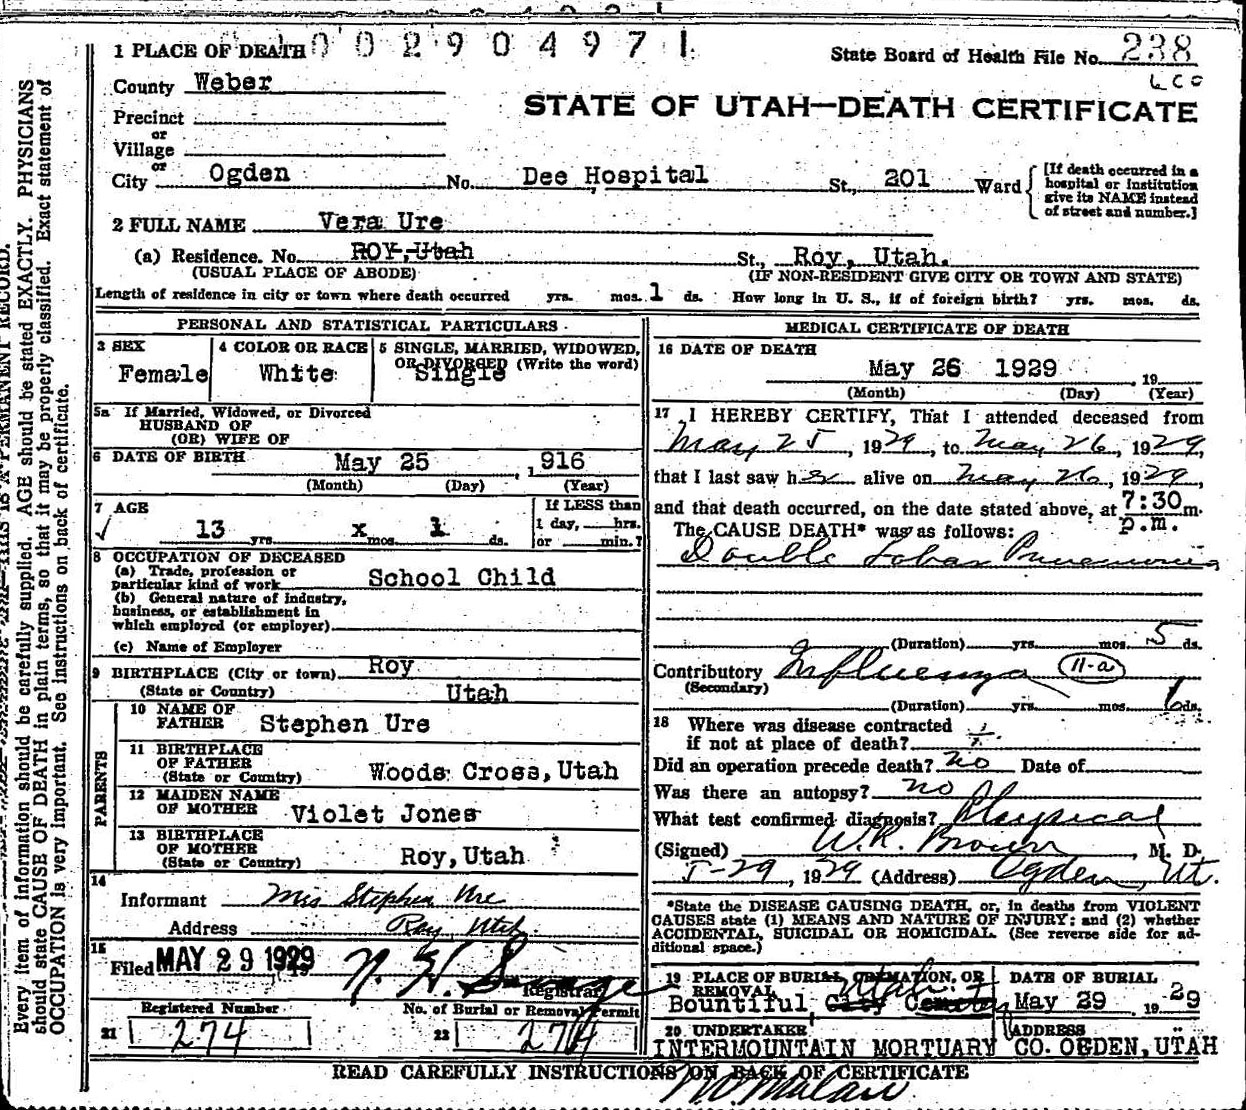 0 0 2 9 0 4 9 7 1
1 PLACE OF DEATH
State Board of Health File No. 238
County Weber
STATE OF UTAH—DEATH CERTIFICATE
Precinct
or
Village
or
City Ogden No. Dee Hospital St., 201 Ward
[If death occurred in a hospital or institution give its NAME instead of street and number.]
2 FULL NAME Vera Ure
(a) Residence. No. ROY, Utah St., Roy, Utah.
(USUAL PLACE OF ABODE) (IF NON-RESIDENT GIVE CITY OR TOWN AND STATE)
Length of residence in city or town where death occurred yrs. mos. 1 ds. How long in U. S., if of foreign birth? yrs. mos. ds.
PERSONAL AND STATISTICAL PARTICULARS
3 SEX
Female
4 COLOR OR RACE
White
5 SINGLE, MARRIED, WIDOWED,
OR DIVORCED (Write the word)
Single
5a If Married, Widowed, or Divorced
HUSBAND OF
(OR) WIFE OF
6 DATE OF BIRTH May 25, 1916
(Month) (Day) (Year)
7 AGE
13 yrs. x mos. 1 ds.
If LESS than
1 day, hrs.
or min.?
8 OCCUPATION OF DECEASED
(a) Trade, profession or
particular kind of work School Child
(b) General nature of industry,
business, or establishment in
which employed (or employer)
(c) Name of Employer
9 BIRTHPLACE (City or town) Roy
(State or Country) Utah
PARENTS
10 NAME OF
FATHER Stephen Ure
11 BIRTHPLACE
OF FATHER
(State or Country) Woods Cross, Utah
12 MAIDEN NAME
OF MOTHER Violet Jones
13 BIRTHPLACE
OF MOTHER
(State or Country) Roy, Utah
14
Informant Mrs Stephen Ure
Address Roy Utah
15
Filed MAY 29 1929
Registrar
Registered Number
21 274
No. of Burial or Removal Permit
22 274
MEDICAL CERTIFICATE OF DEATH
16 DATE OF DEATH
May 26 1929, 19
(Month) (Day) (Year)
17 I HEREBY CERTIFY, That I attended deceased from
May 25, 1929, to May 26, 1929,
that I last saw her alive on May 26, 1929,
and that death occurred, on the date stated above, at 7:30 m.
p.m.
The CAUSE DEATH* was as follows:
Double Lobar Pneumonia
(Duration) yrs. mos. 5 ds.
Contributory Influenza 11-a
(Secondary)
(Duration) yrs. mos. 6 ds.
18 Where was disease contracted
if not at place of death?
Did an operation precede death? no Date of
Was there an autopsy? no
What test confirmed diagnosis? Physical
(Signed) W.R. Brown, M. D.
5-29, 1929 (Address) Ogden, Ut.
*State the DISEASE CAUSING DEATH, or, in deaths from VIOLENT
CAUSES state (1) MEANS AND NATURE OF INJURY; and (2) whether
ACCIDENTAL, SUICIDAL OR HOMICIDAL. (See reverse side for ad-
ditional space.)
19 PLACE OF BURIAL, CREMATION, OR
REMOVAL Utah
Bountiful, City Cemetery
DATE OF BURIAL
May 29, 1929
20 UNDERTAKER
INTERMOUNTAIN MORTUARY CO.
ADDRESS
OGDEN, UTAH
READ CAREFULLY INSTRUCTIONS ON BACK OF CERTIFICATE
Every item of information should be carefully supplied. AGE should be stated EXACTLY. PHYSICIANS
should state CAUSE OF DEATH in plain terms, so that it may be properly classified. Exact statement of
OCCUPATION is very important. See instructions on back of certificate.